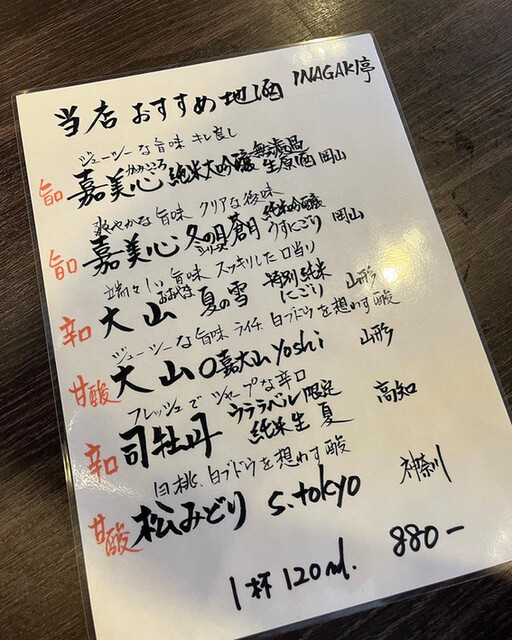 当店 おすすめ地酒 INAGAKI亭
ジューシーな旨味 キレ良し
旨口 嘉美心 かみこころ 純米大吟醸 無濾過生原酒 岡山
爽やかな旨味 クリアな後味
旨口 嘉美心 冬の月シリーズ 蒼月 純米吟醸 うすにごり 岡山
瑞々しい旨味 スッキリした口当り
辛口 大山 おおやま 夏の雪 特別純米 にごり 山形
ジューシーな旨味 ライチ 白ブドウを想わす酸
甘酸 大山 嘉大山 Yoshi 山形
フレッシュでシャープな辛口
辛口 司牡丹 ウララベル 限定 純米生 夏 高知
白桃、白ブドウを想わす酸
甘酸 松みどり S.tokyo 神奈川
1杯 120ml. 880-